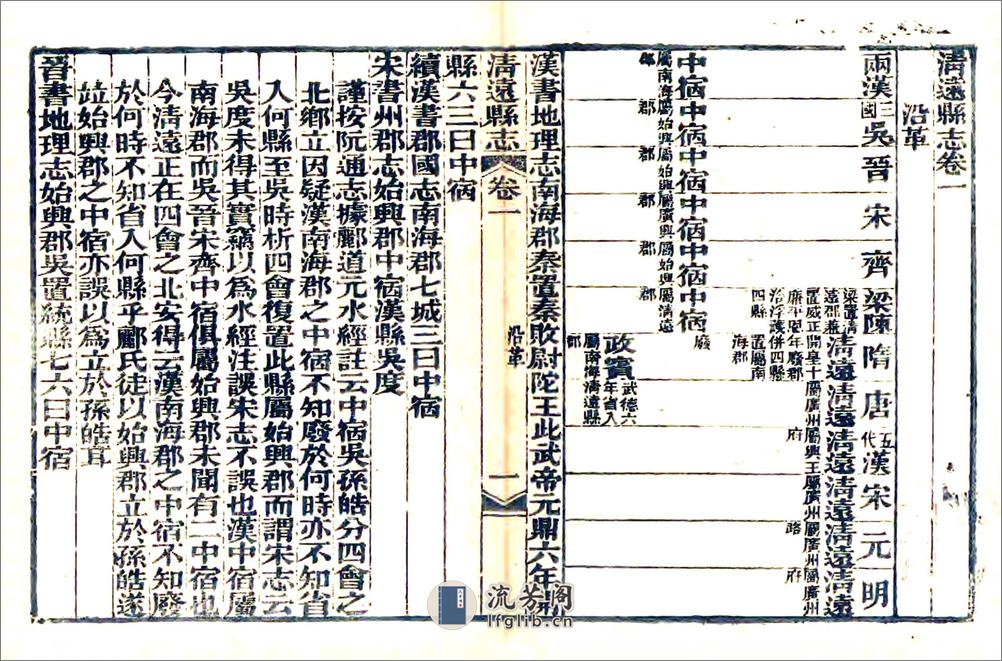 清遠縣志卷一
沿革
兩漢 三國吳 晉 宋 齊 梁陳 隋 唐 五代漢 宋 元 明
梁置清遠郡兼置威正廉平恩洽浮護四縣
清遠 開皇十年廢郡併四縣置屬南海郡
清遠 屬廣州
清遠 屬興王府
清遠 屬廣州
清遠 屬廣州路
清遠 屬廣州府
中宿 屬南海郡
中宿 屬始興郡
中宿 屬始興郡
中宿 屬廣興郡
中宿 屬始興郡
中宿 屬清遠郡
廢
政賓 屬南海郡
武德六年省入清遠縣
漢書地理志南海郡秦置秦敗尉陀王此武帝元鼎六年開
清遠縣志 卷一 沿革 一
縣六三曰中宿
續漢書郡國志南海郡七城三曰中宿
宋書州郡志始興郡中宿漢縣吳度
謹按阮通志據酈道元水經註云中宿吳孫皓分四會之
北鄉立因疑漢南海郡之中宿不知廢於何時亦不知省
入何縣至吳時析四會復置此縣屬始興郡而謂宋志云
吳度未得其實竊以為水經注誤宋志不誤也漢中宿屬
南海郡而吳晉宋齊中宿俱屬始興郡未聞有二中宿也
今清遠正在四會之北安得云漢南海郡之中宿不知廢
於何時不知省入何縣乎酈氏徒以始興郡立於孫皓遂
竝始興郡之中宿亦誤以為立於孫皓耳
晉書地理志始興郡吳置統縣七六曰中宿
流芳閣
lfglib.cn